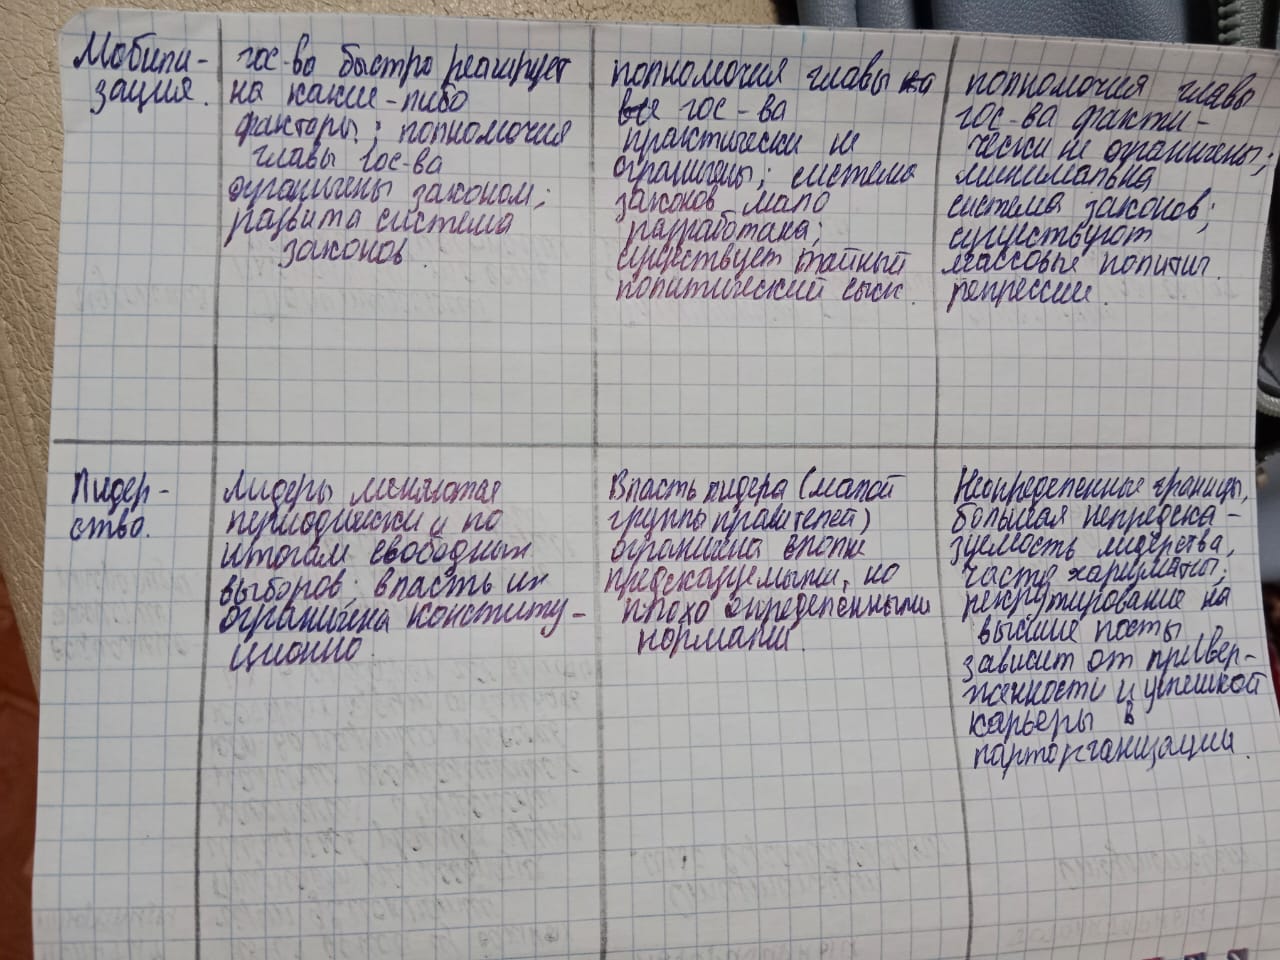 Мобили-
зация.
гос-во быстро реагирует
на какие-либо
факторы; полномочия
главы гос-ва
ограничены законом;
развита система
законов.
полномочия главы на
все гос-ва
практически не
ограничены; система
законов мало
разработана;
существует тайный
политический сыск.
полномочия главы
гос-ва факти-
чески не ограничены;
минимальна
система законов;
существуют
массовые политич.
репрессии.
Лидер-
ство.
Лидеры меняются
периодически и по
итогам свободных
выборов; власть их
ограничена конститу-
ционно.
Власть лидера (малой
группы правителей)
ограничена вполне
предсказуемыми, но
плохо определенными
нормами.
Неопределенные границы,
большая непредска-
зуемость лидерства,
часто харизматы;
рекрутирование на
высшие посты
зависит от привер-
женности и успешной
карьеры в
парторганизации.